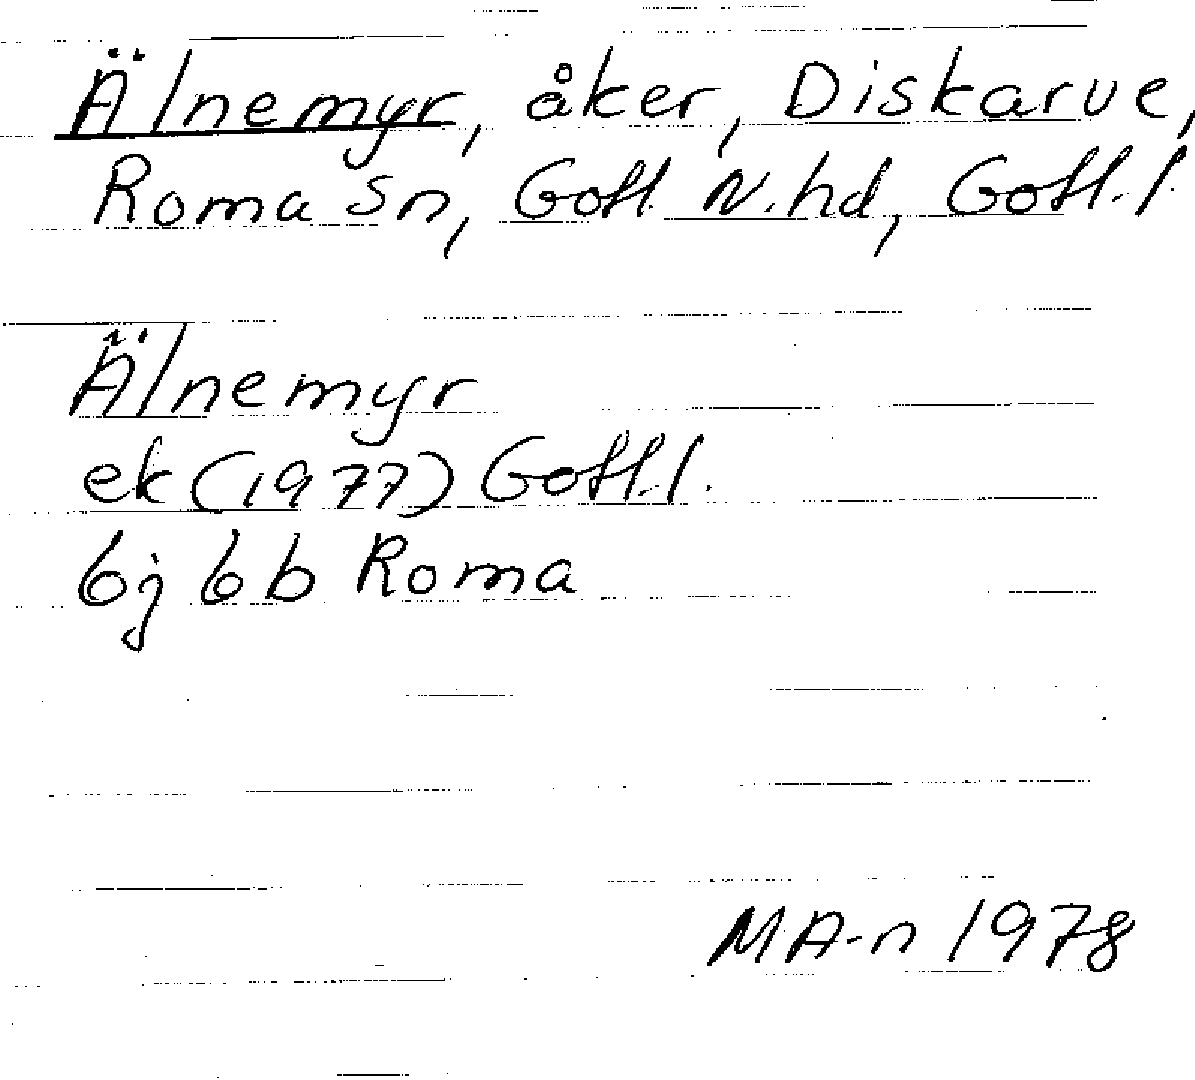 Älnemyr, åker, Diskarve,
Roma sn, Gotl. N. hd, Gotl. l.
Älnemyr
ek (1977) Gotl. l.
6j 6b Roma
MA-n 1978